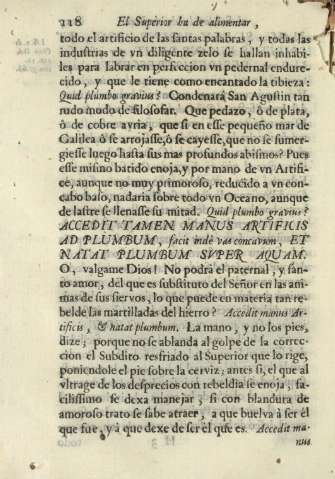 218 El Superior ha de alimentar,
todo el artificio de las santas palabras, y todas las
industrias de vn diligente zelo se hallan inhabi-
les para labrar en perfeccion vn pedernal endure-
cido, y que le tiene como encantado la tibieza:
Quid plumbo gravius? Condenarà San Agustin tan
rudo modo de filosofar. Que pedazo, ò de plata,
ò de cobre avria, que si en esse pequeño mar de
Galilea ò se arrojasse, ò se cayesse, que no se sumer-
giesse luego hasta sus mas profundos abismos? Pues
esse mismo batido enoja, y por mano de vn Artifi-
ce, aunque no muy primoroso, reducido a vn con-
cabo baso, nadaria sobre todo vn Oceano, aunque
de lastre se llenasse su mitad. Quid plumbo gravius?
ACCEDIT TAMEN MANUS ARTIFICIS
AD PLUMBUM, facit inde vas concavum, ET
NATAT PLUMBUM SVPER AQUAM.
O, valgame Dios! No podrà el paternal, y san-
to amor, del que es substituto del Señor en las ani-
mas de sus siervos, lo que puede en materia tan re-
belde las martilladas del hierro? Accedit manus Ar-
tificis, & natat plumbum. La mano, y no los pies,
dize; porque no se ablanda al golpe de la correc-
cion el Subdito resfriado al Superior que lo rige,
poniendole el pie sobre la cerviz; antes si, el que al
vltrage de los desprecios con rebeldia se enoja; fa-
cilissimo se dexa manejar, si con blandura de
amoroso trato se sabe atraer, a que buelva à ser èl
que fue, y à que dexe de ser èl que es. Accedit ma-
nus